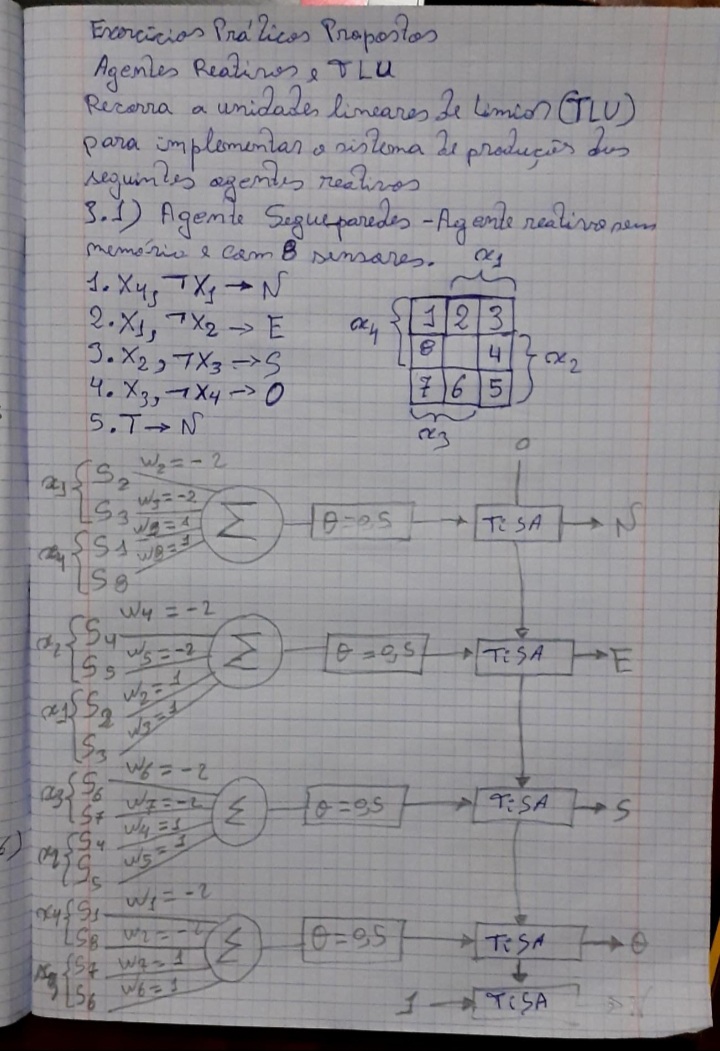 Exercícios Práticos Propostos
Agentes Reativos e TLU
Recorra a unidades lineares de limiar (TLU)
para implementar o sistema de produção dos
seguintes agentes reativos
3.1) Agente Segueparedes - Agente reativo sem
memória e com 8 sensores.
x1
1. X4, ¬X1 → N
2. X1, ¬X2 → E
3. X2, ¬X3 → S
4. X3, ¬X4 → O
5. T → N
x4
1 2 3
8 4
7 6 5
x2
x3
0
x1 S2 w2 = -2
S3 w3 = -2
x4 S1 = 1
S8 w8 = 1
Σ θ = 0,5 TiSA → N
x2 S4 w4 = -2
S5 w5 = -2
x1 S2 w2 = 1
S3 w3 = 1
Σ θ = 0,5 TiSA → E
x3 S6 w6 = -2
S7 w7 = -2
S4 w4 = 1
S5 w5 = 1
Σ θ = 0,5 TiSA → S
x4 S1 w1 = -2
S8 = -2
x3 S7 = 1
S6 w6 = 1
Σ θ = 0,5 TiSA → O
1 → TiSA